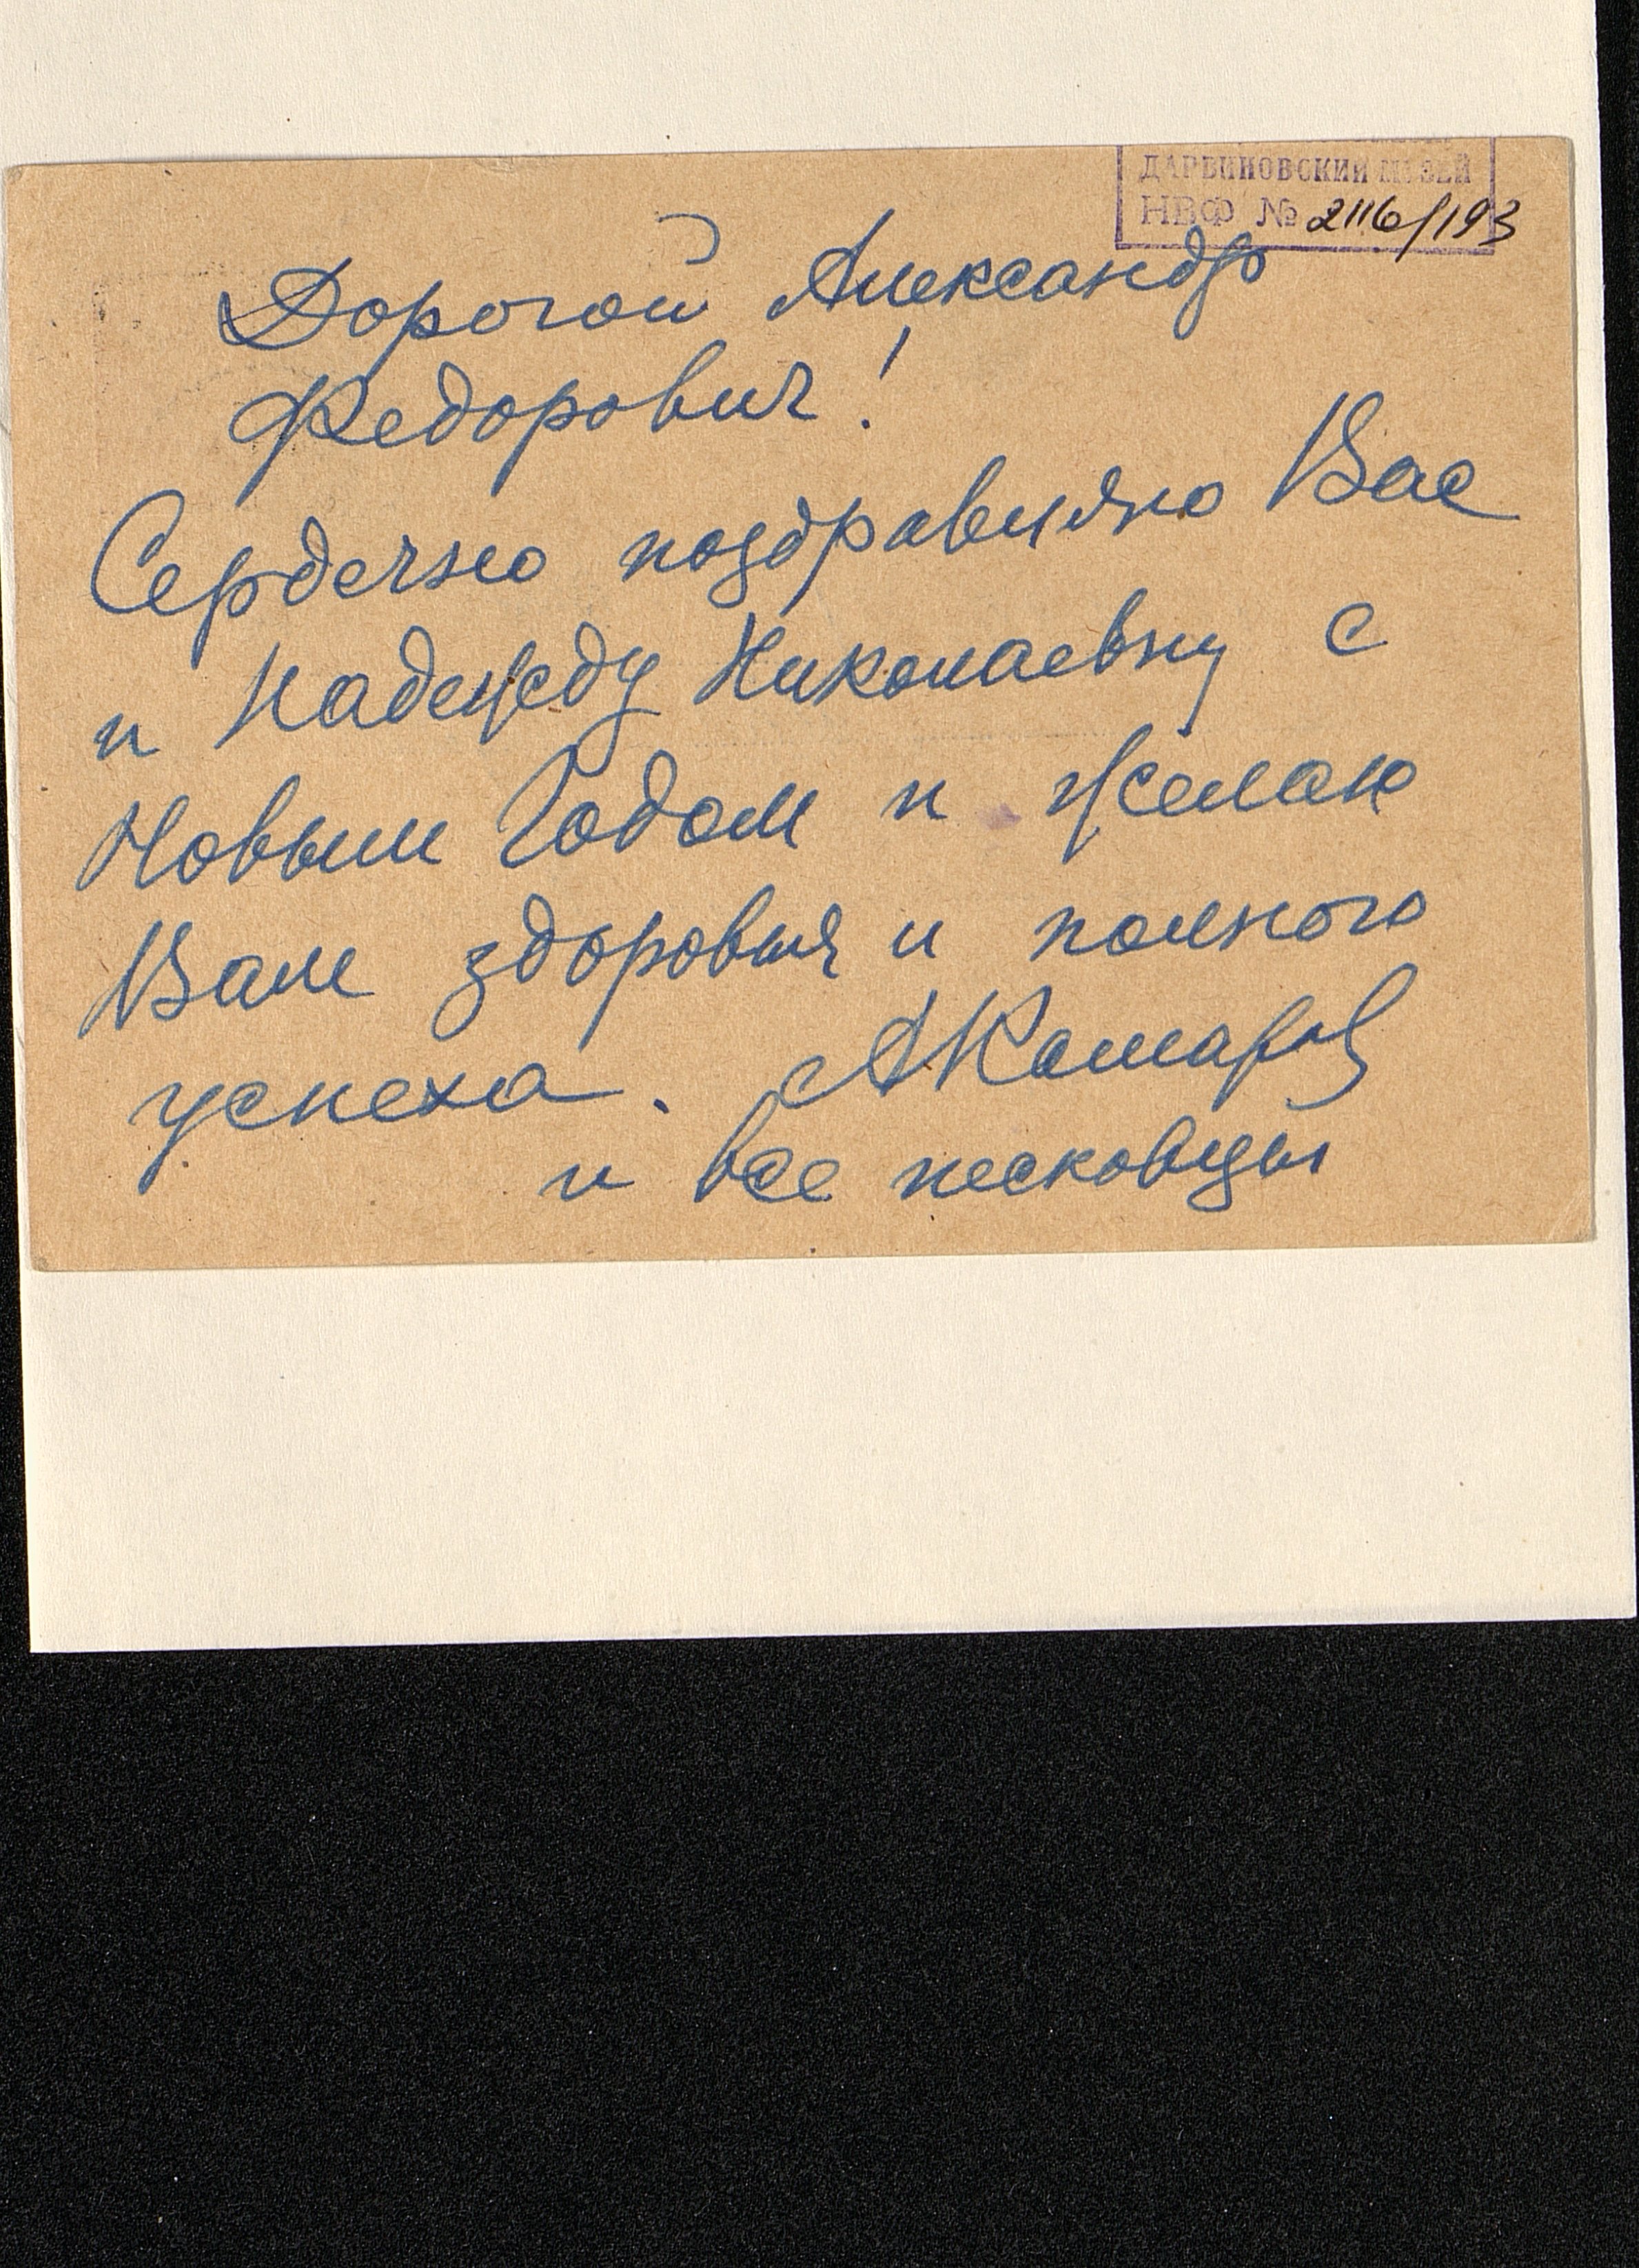 ДАРВИНОВСКИЙ МУЗЕЙ
НВФ № 2116/193
Дорогой Александр
Федорович!
Сердечно поздравляю Вас
и Надежду Николаевну с
Новым Годом и желаю
Вам здоровья и полного
успеха. АКомаров
и все песковцы